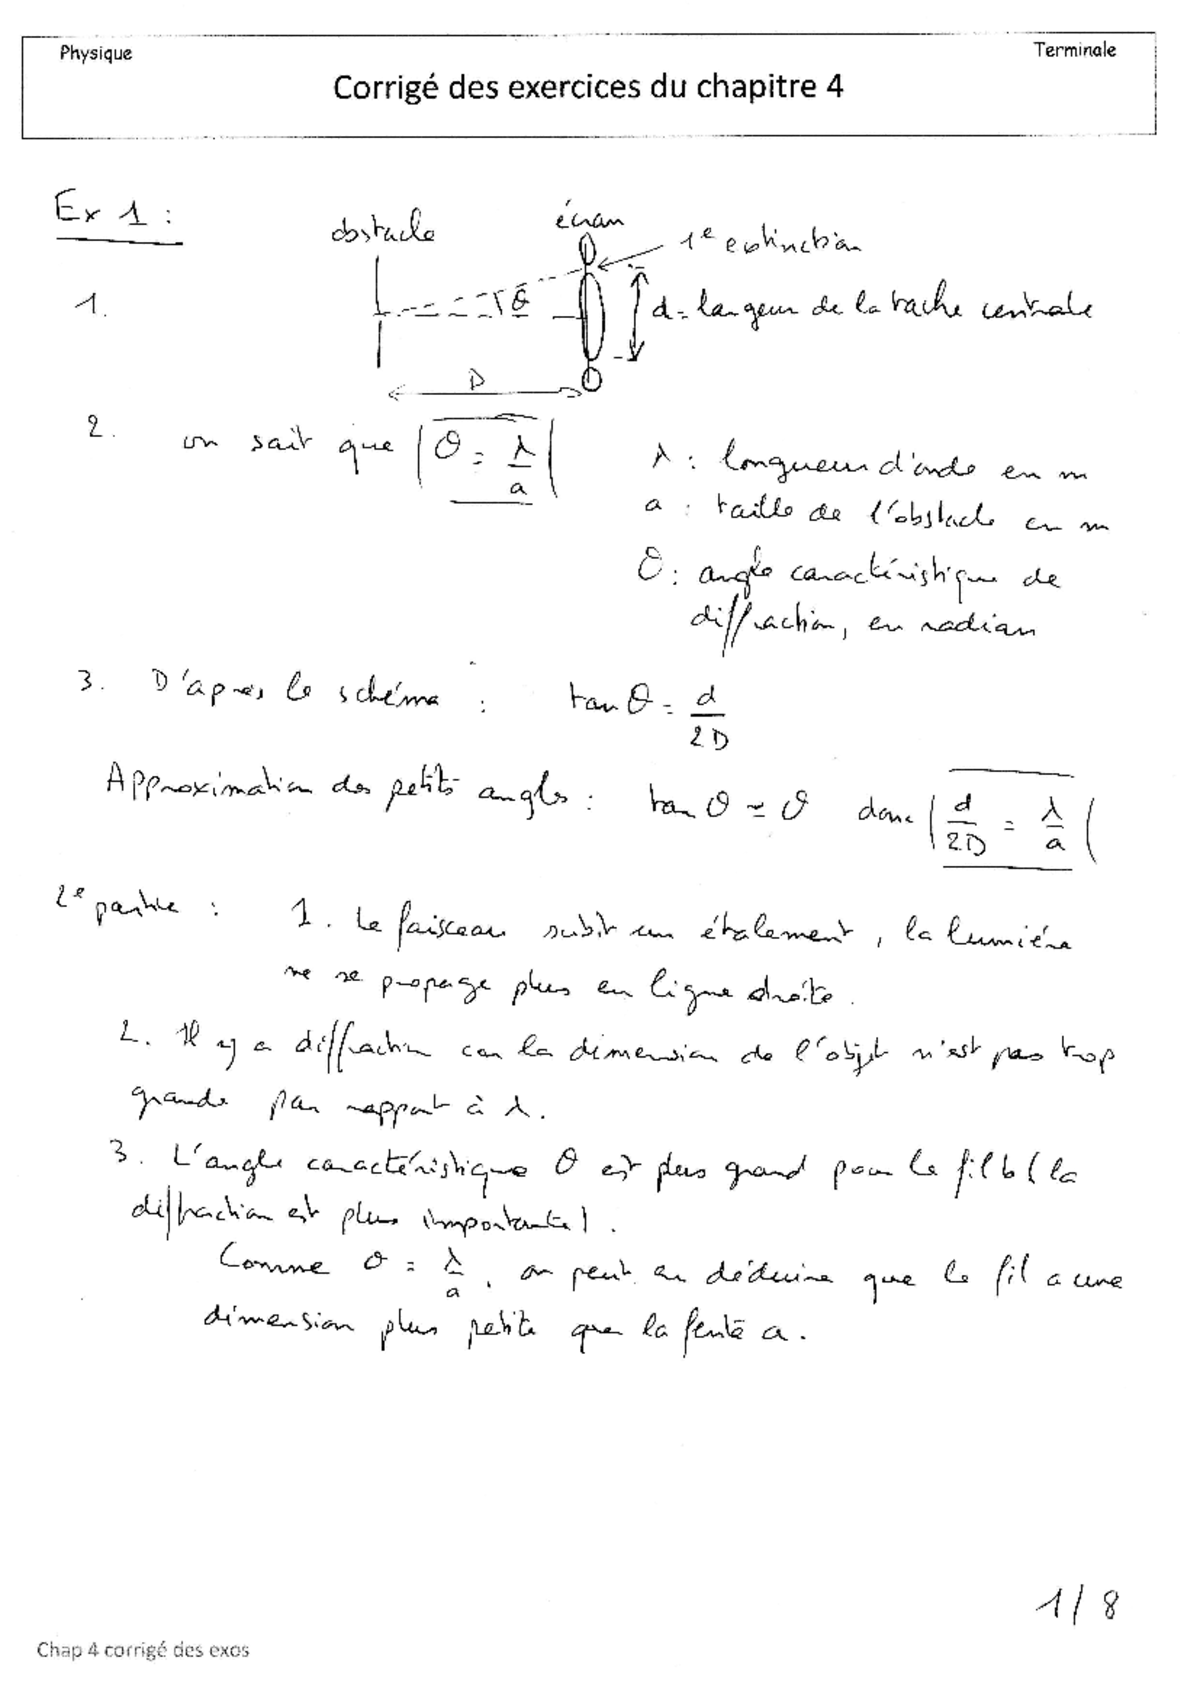 Physique
Terminale
Corrigé des exercices du chapitre 4
Ex 1 :
obstacle
écran
1e extinction
1.
θ
d = largeur de la tache centrale
D
2. on sait que θ = λ/a
λ : longueur d'onde en m
a : taille de l'obstacle en m
θ : angle caractéristique de
diffraction, en radian
3. D'après le schéma : tan θ = d/2D
Approximation des petits angles : tan θ ≃ θ donc d/2D = λ/a
2e partie : 1. Le faisceau subit un étalement, la lumière
ne se propage plus en ligne droite.
2. Il y a diffraction car la dimension de l'objet n'est pas trop
grande par rapport à λ.
3. L'angle caractéristique θ est plus grand pour le fil b (la
diffraction est plus importante).
Comme θ = λ/a, on peut en déduire que le fil a une
dimension plus petite que la fente a.
1/8
Chap 4 corrigé des exos